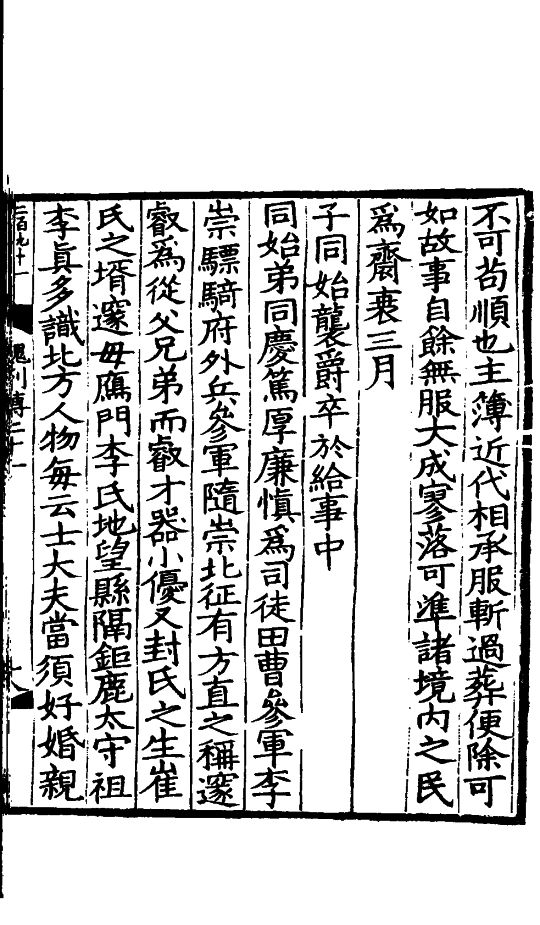 不可苟順也主簿近代相承服斬過葬便除可
如故事自餘無服大成寥落可準諸境內之民
爲齋衰三月
子同始襲爵卒於給事中
同始弟同慶篤厚廉慎爲司徒田曹參軍李
崇驃騎府外兵參軍隨崇北征有方直之稱邃
叡爲從父兄弟而叡才器小優又封氏之生崔
氏之壻邃毋鴈門李氏地望縣隔鉅鹿太守祖
李真多識北方人物每云士大夫當須好婚親
二百九十一
魏列傳二十一